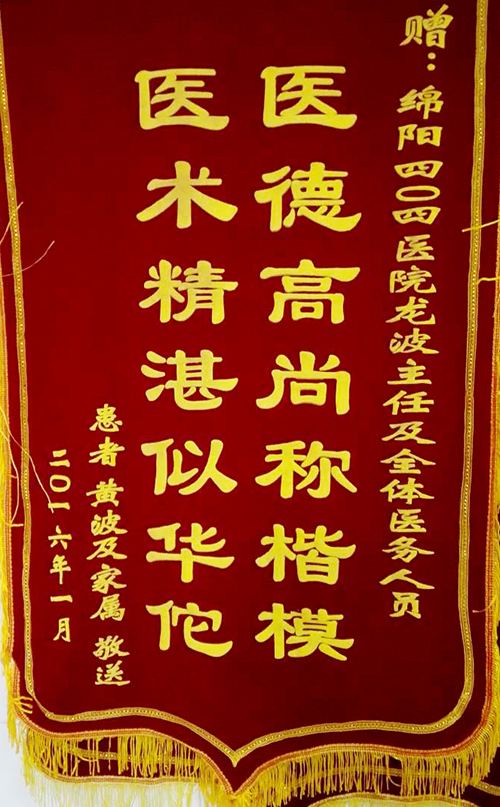 赠：绵阳四〇四医院龙波主任及全体医务人员
医德高尚称楷模
医术精湛似华佗
患者黄波及家属 敬送
二〇一六年一月